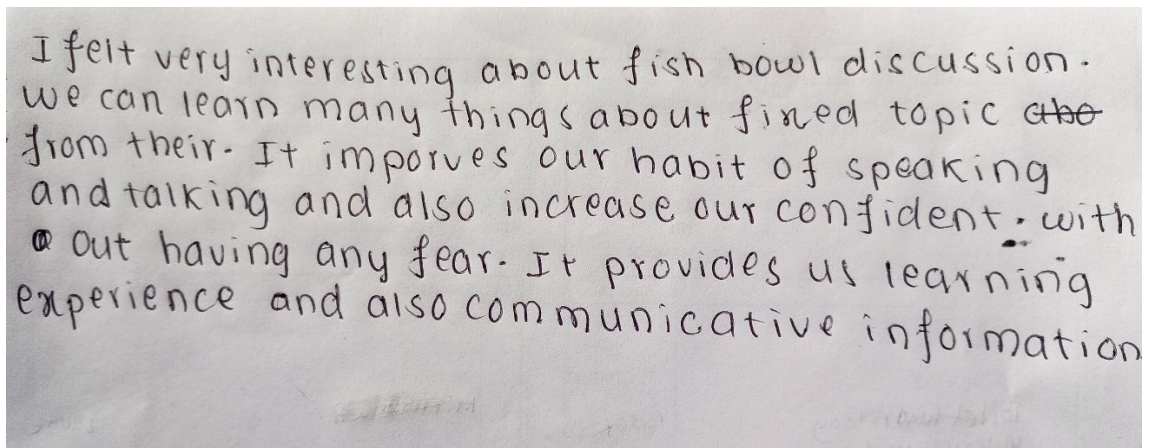 I felt very interesting about fish bowl discussion.
we can learn many things about fixed topic
from their. It imporves our habit of speaking
and talking and also increase our confident. with
out having any fear. It provides us learning
experience and also communicative information